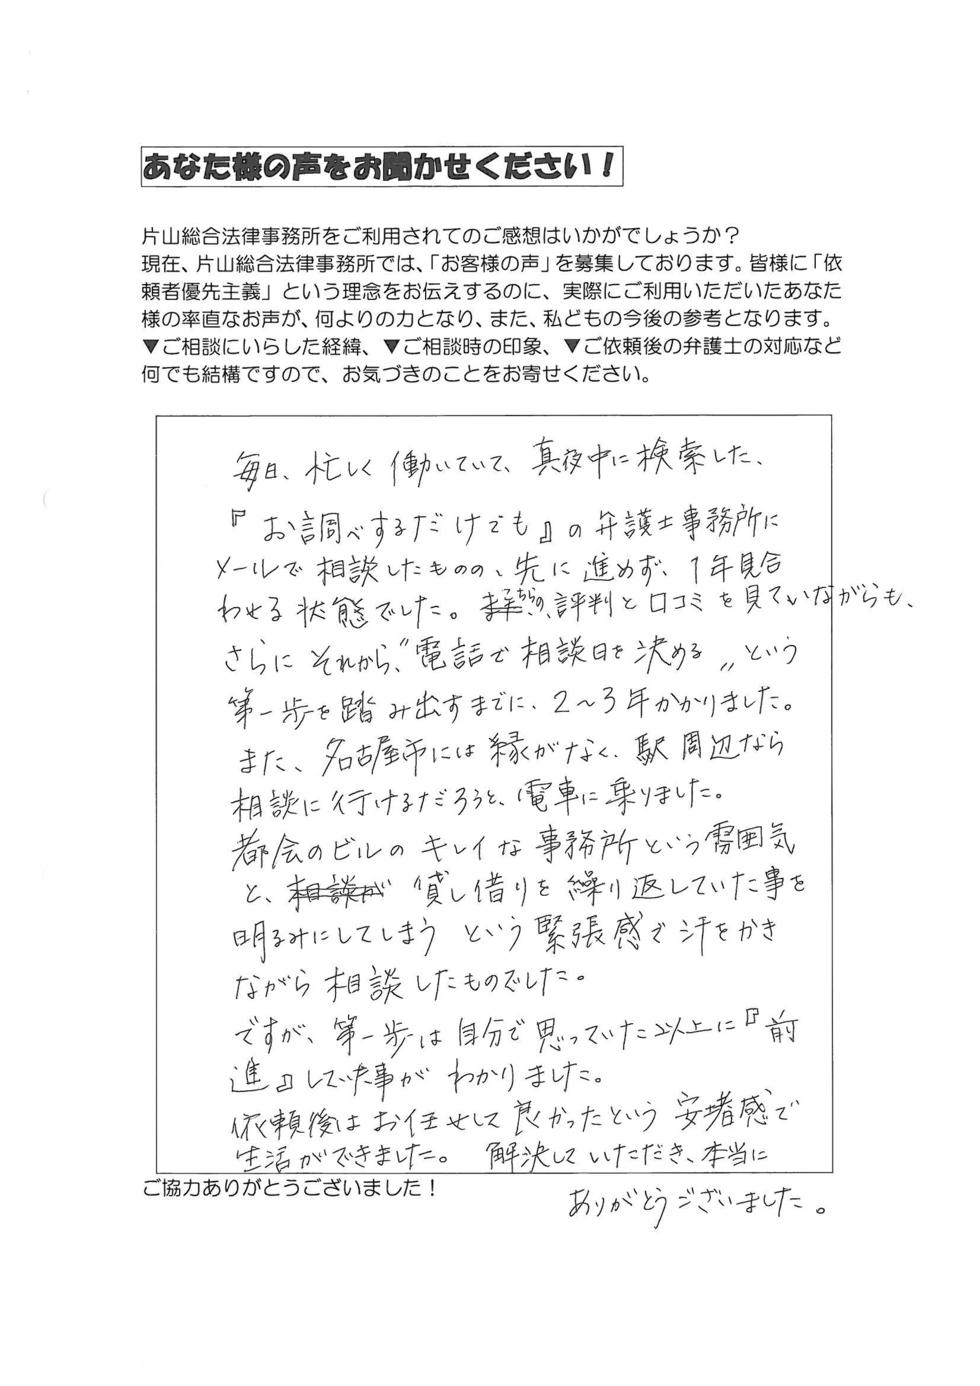 あなた様の声をお聞かせください！
片山総合法律事務所をご利用されてのご感想はいかがでしょうか？
現在、片山総合法律事務所では、「お客様の声」を募集しております。皆様に「依
頼者優先主義」という理念をお伝えするのに、実際にご利用いただいたあなた
様の率直なお声が、何よりの力となり、また、私どもの今後の参考となります。
▼ご相談にいらした経緯、▼ご相談時の印象、▼ご依頼後の弁護士の対応など
何でも結構ですので、お気づきのことをお寄せください。
毎日、忙しく働いていて、真夜中に検索した、
『お調べするだけでも』の弁護士事務所に
メールで相談したものの、先に進めず、1年見合
わせる状態でした。こちらの、評判と口コミを見ていながらも、
さらにそれから、“電話で相談日を決める„という
第一歩を踏み出すまでに、2～3年かかりました。
また、名古屋市には縁がなく、駅周辺なら
相談に行けるだろうと、電車に乗りました。
都会のビルのキレイな事務所という雰囲気
と、相談が 貸し借りを繰り返していた事を
明るみにしてしまうという緊張感で汗をかき
ながら相談したものでした。
ですが、第一歩は自分で思っていた以上に『前
進』していた事がわかりました。
依頼後はお任せして良かったという安堵感で
生活ができました。 解決していただき、本当に
ご協力ありがとうございました！
ありがとうございました。